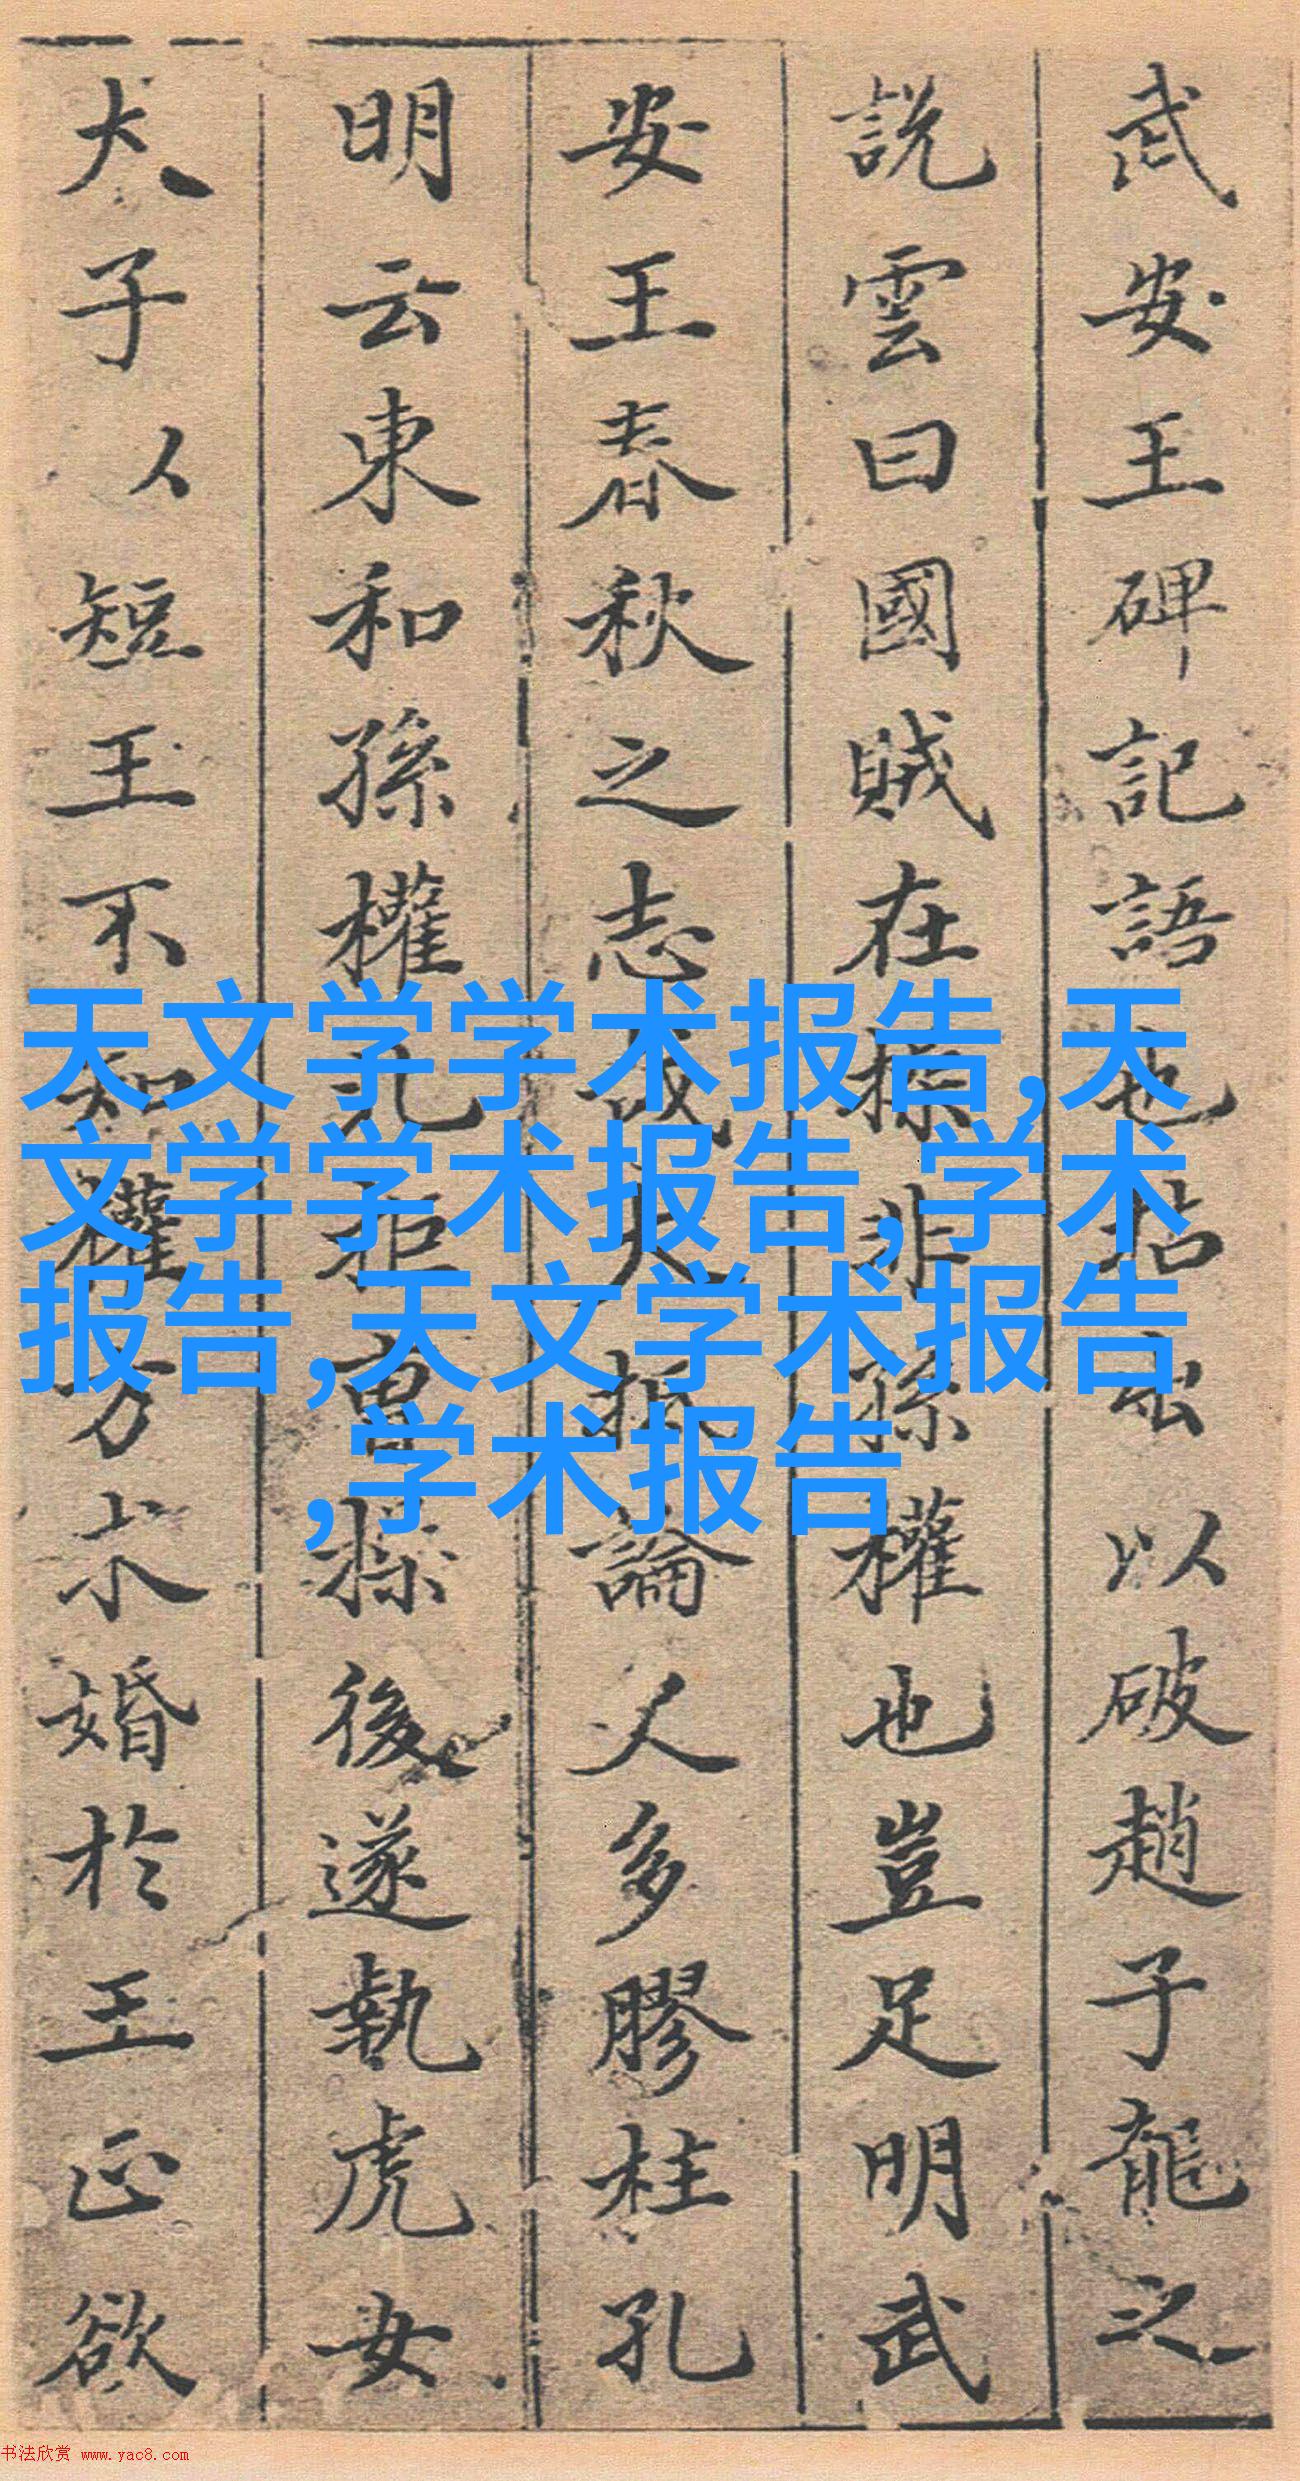 武安王碑記語也拈出以破趙子龍之
說雲曰國賊在操非孫權也豈足明武
安王春秋之志哉大抵論人多膠柱孔
明云東和孫權北拒曹操後遂執虎女
犬子以短王不知權方求婚於王正欲
天文学学术报告,天
文学学术报告,学术
报告,天文学术报告
,学术报告
书法欣赏 www.yac8.com